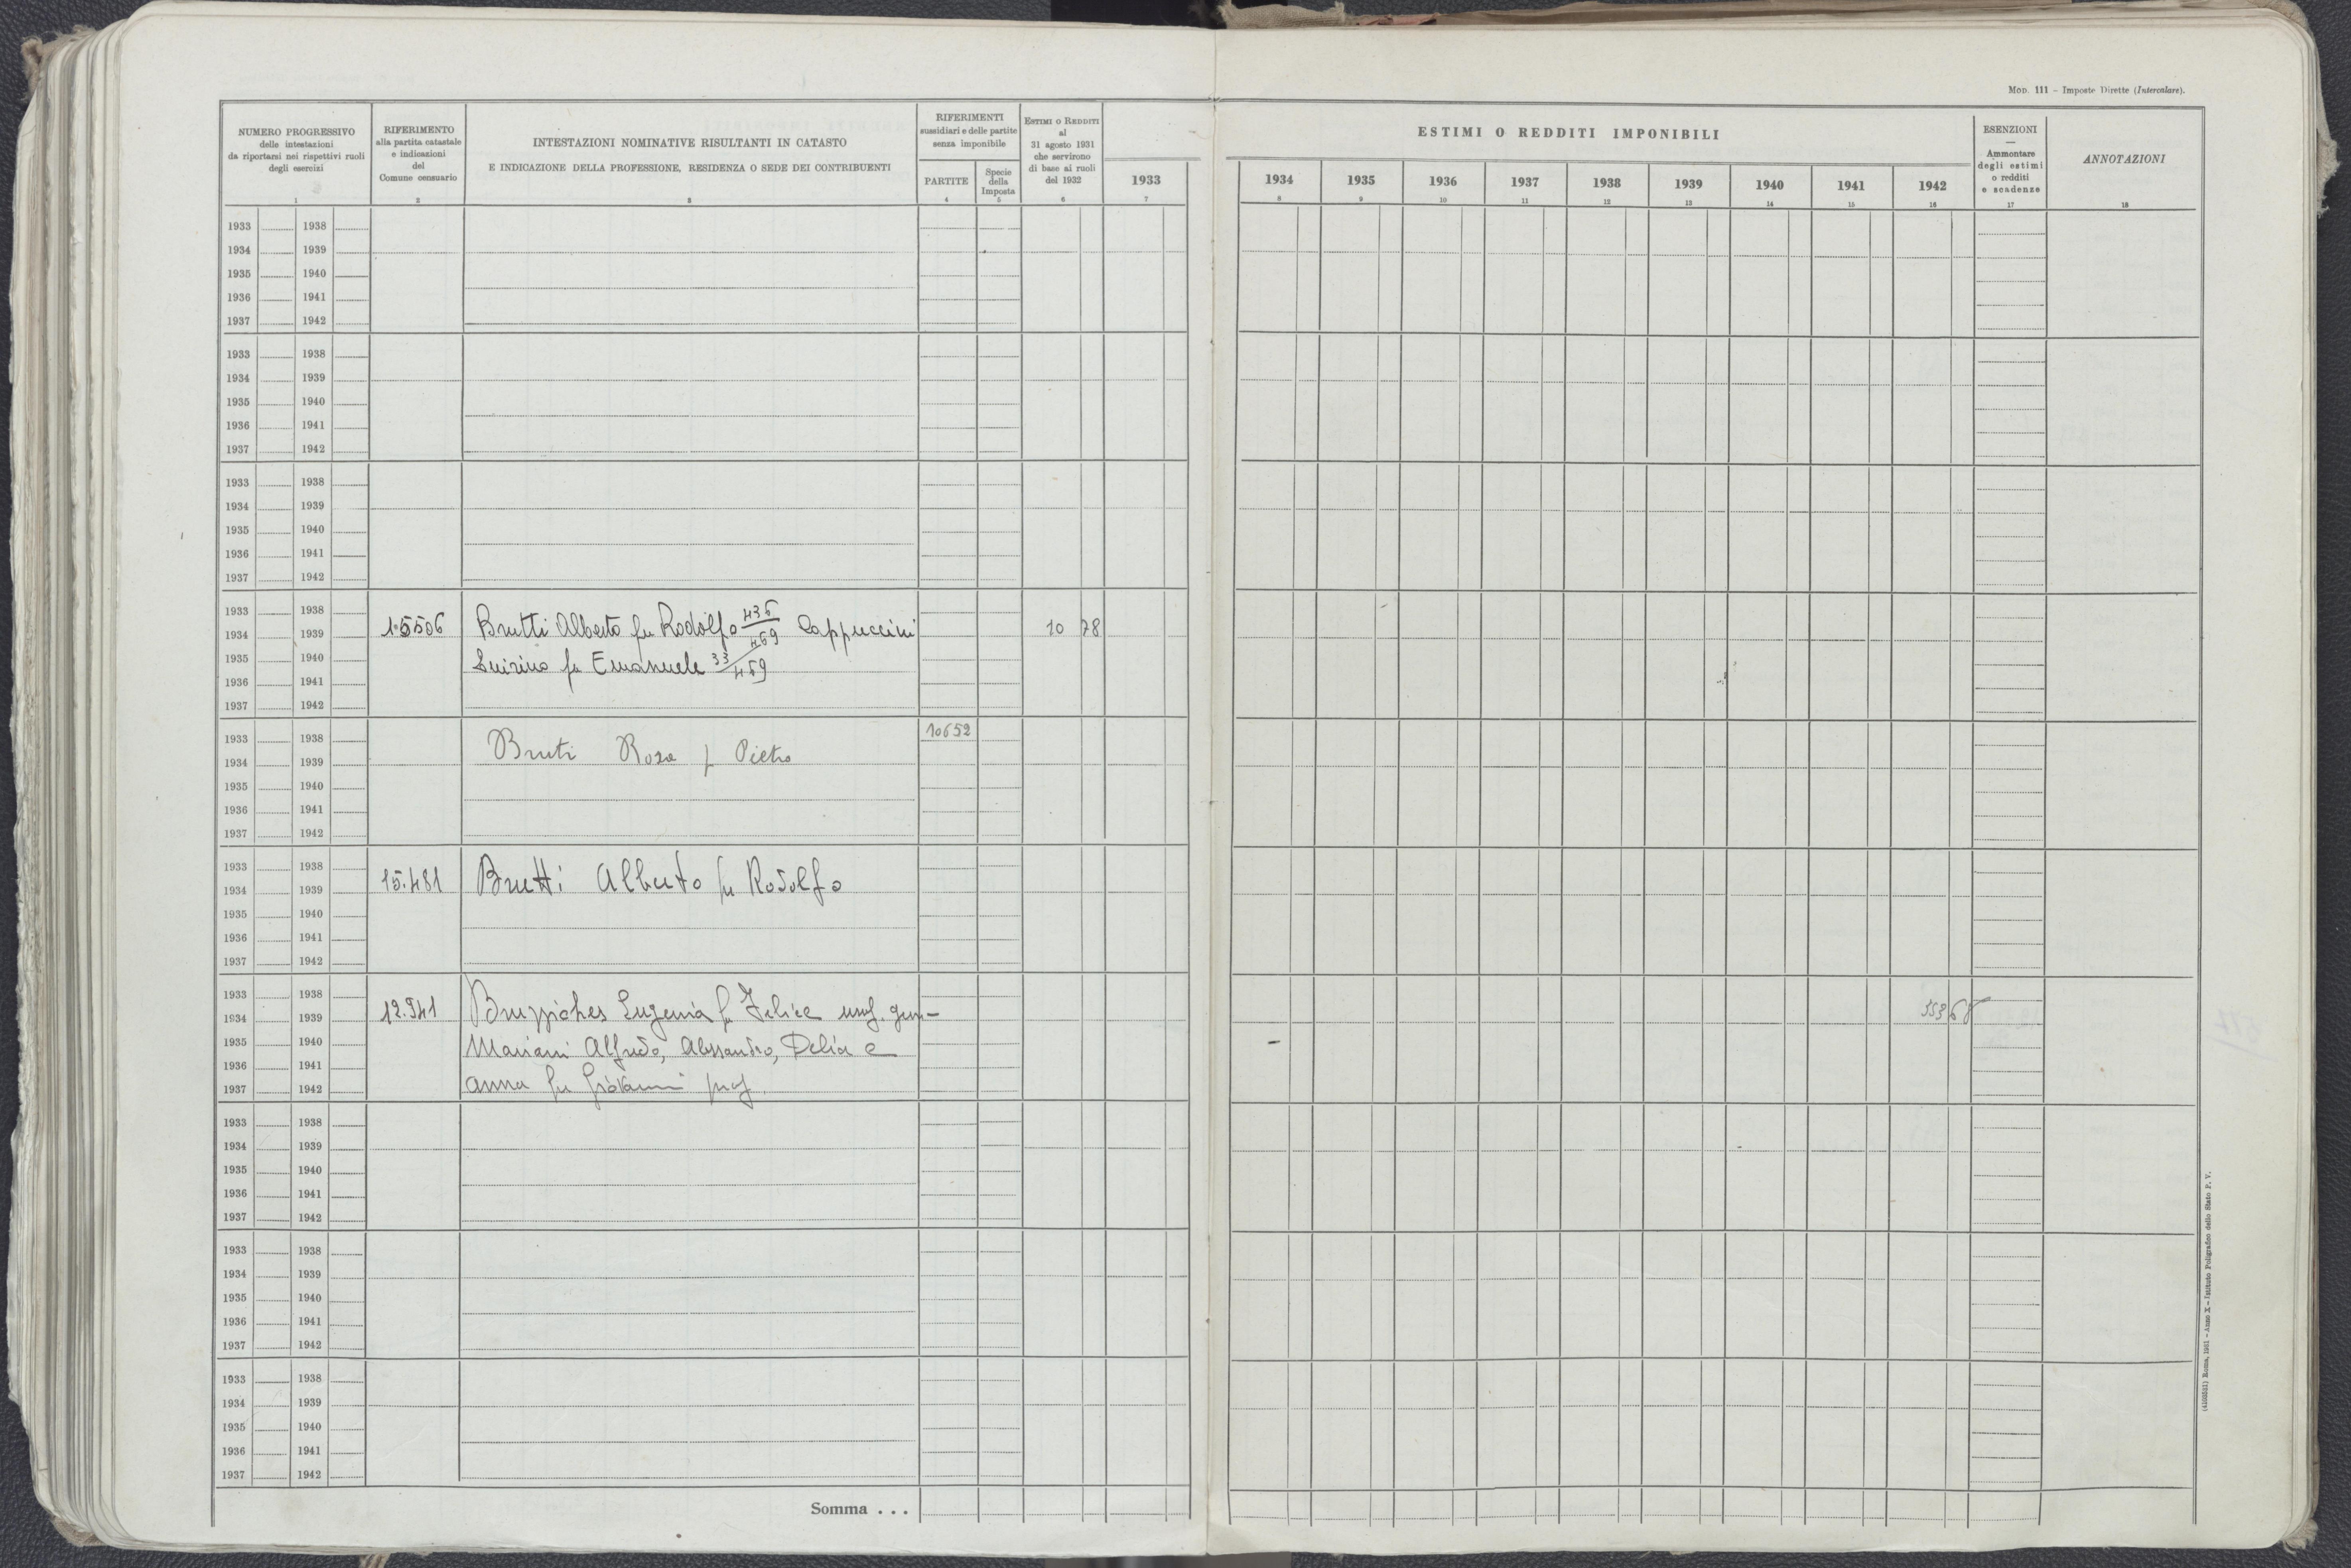 Mod. 111 - Imposte Dirette (Intercalare).
NUMERO PROGRESSIVO
delle intestazioni
da riportarsi nei rispettivi ruoli
degli esercizi
1
RIFERIMENTO
alla partita catastale
e indicazioni
del
Comune censuario
2
INTESTAZIONI NOMINATIVE RISULTANTI IN CATASTO
E INDICAZIONE DELLA PROFESSIONE, RESIDENZA O SEDE DEI CONTRIBUENTI
3
RIFERIMENTI
sussidiari e delle partite
senza imponibile
PARTITE
4
Specie
della
Imposta
5
ESTIMI O REDDITI
al
31 agosto 1931
che servirono
di base ai ruoli
del 1932
6
1933
7
ESTIMI O REDDITI IMPONIBILI
1934 1935 1936 1937 1938 1939 1940 1941 1942
8 9 10 11 12 13 14 15 16
ESENZIONI
—
Ammontare
degli estimi
o redditi
e scadenze
17
ANNOTAZIONI
18
1933 1938
1934 1939
1935 1940
1936 1941
1937 1942
1933 1938
1934 1939
1935 1940
1936 1941
1937 1942
1933 1938
1934 1939
1935 1940
1936 1941
1937 1942
1933 1938
1934 1939
1935 1940
1936 1941
1937 1942
15506
Brutti Alberto fu Rodolfo 436/469 Cappuccini
fu Emanuele 33/469
10 78
1933 1938
1934 1939
1935 1940
1936 1941
1937 1942
Bruti Rosa f Pietro
10652
1933 1938
1934 1939
1935 1940
1936 1941
1937 1942
15.481
Brutti Alberto fu Rodolfo
1933 1938
1934 1939
1935 1940
1936 1941
1937 1942
12.941
Bruzziches Eugenia fu Felice usuf. gen-
Mariani Alfredo, Alessandro, Delia e
Anna fu Giovanni prop.
1933 1938
1934 1939
1935 1940
1936 1941
1937 1942
1933 1938
1934 1939
1935 1940
1936 1941
1937 1942
1933 1938
1934 1939
1935 1940
1936 1941
1937 1942
Somma . . .
(4103531) Roma, 1931 - Anno X - Istituto Poligrafico dello Stato P. V.